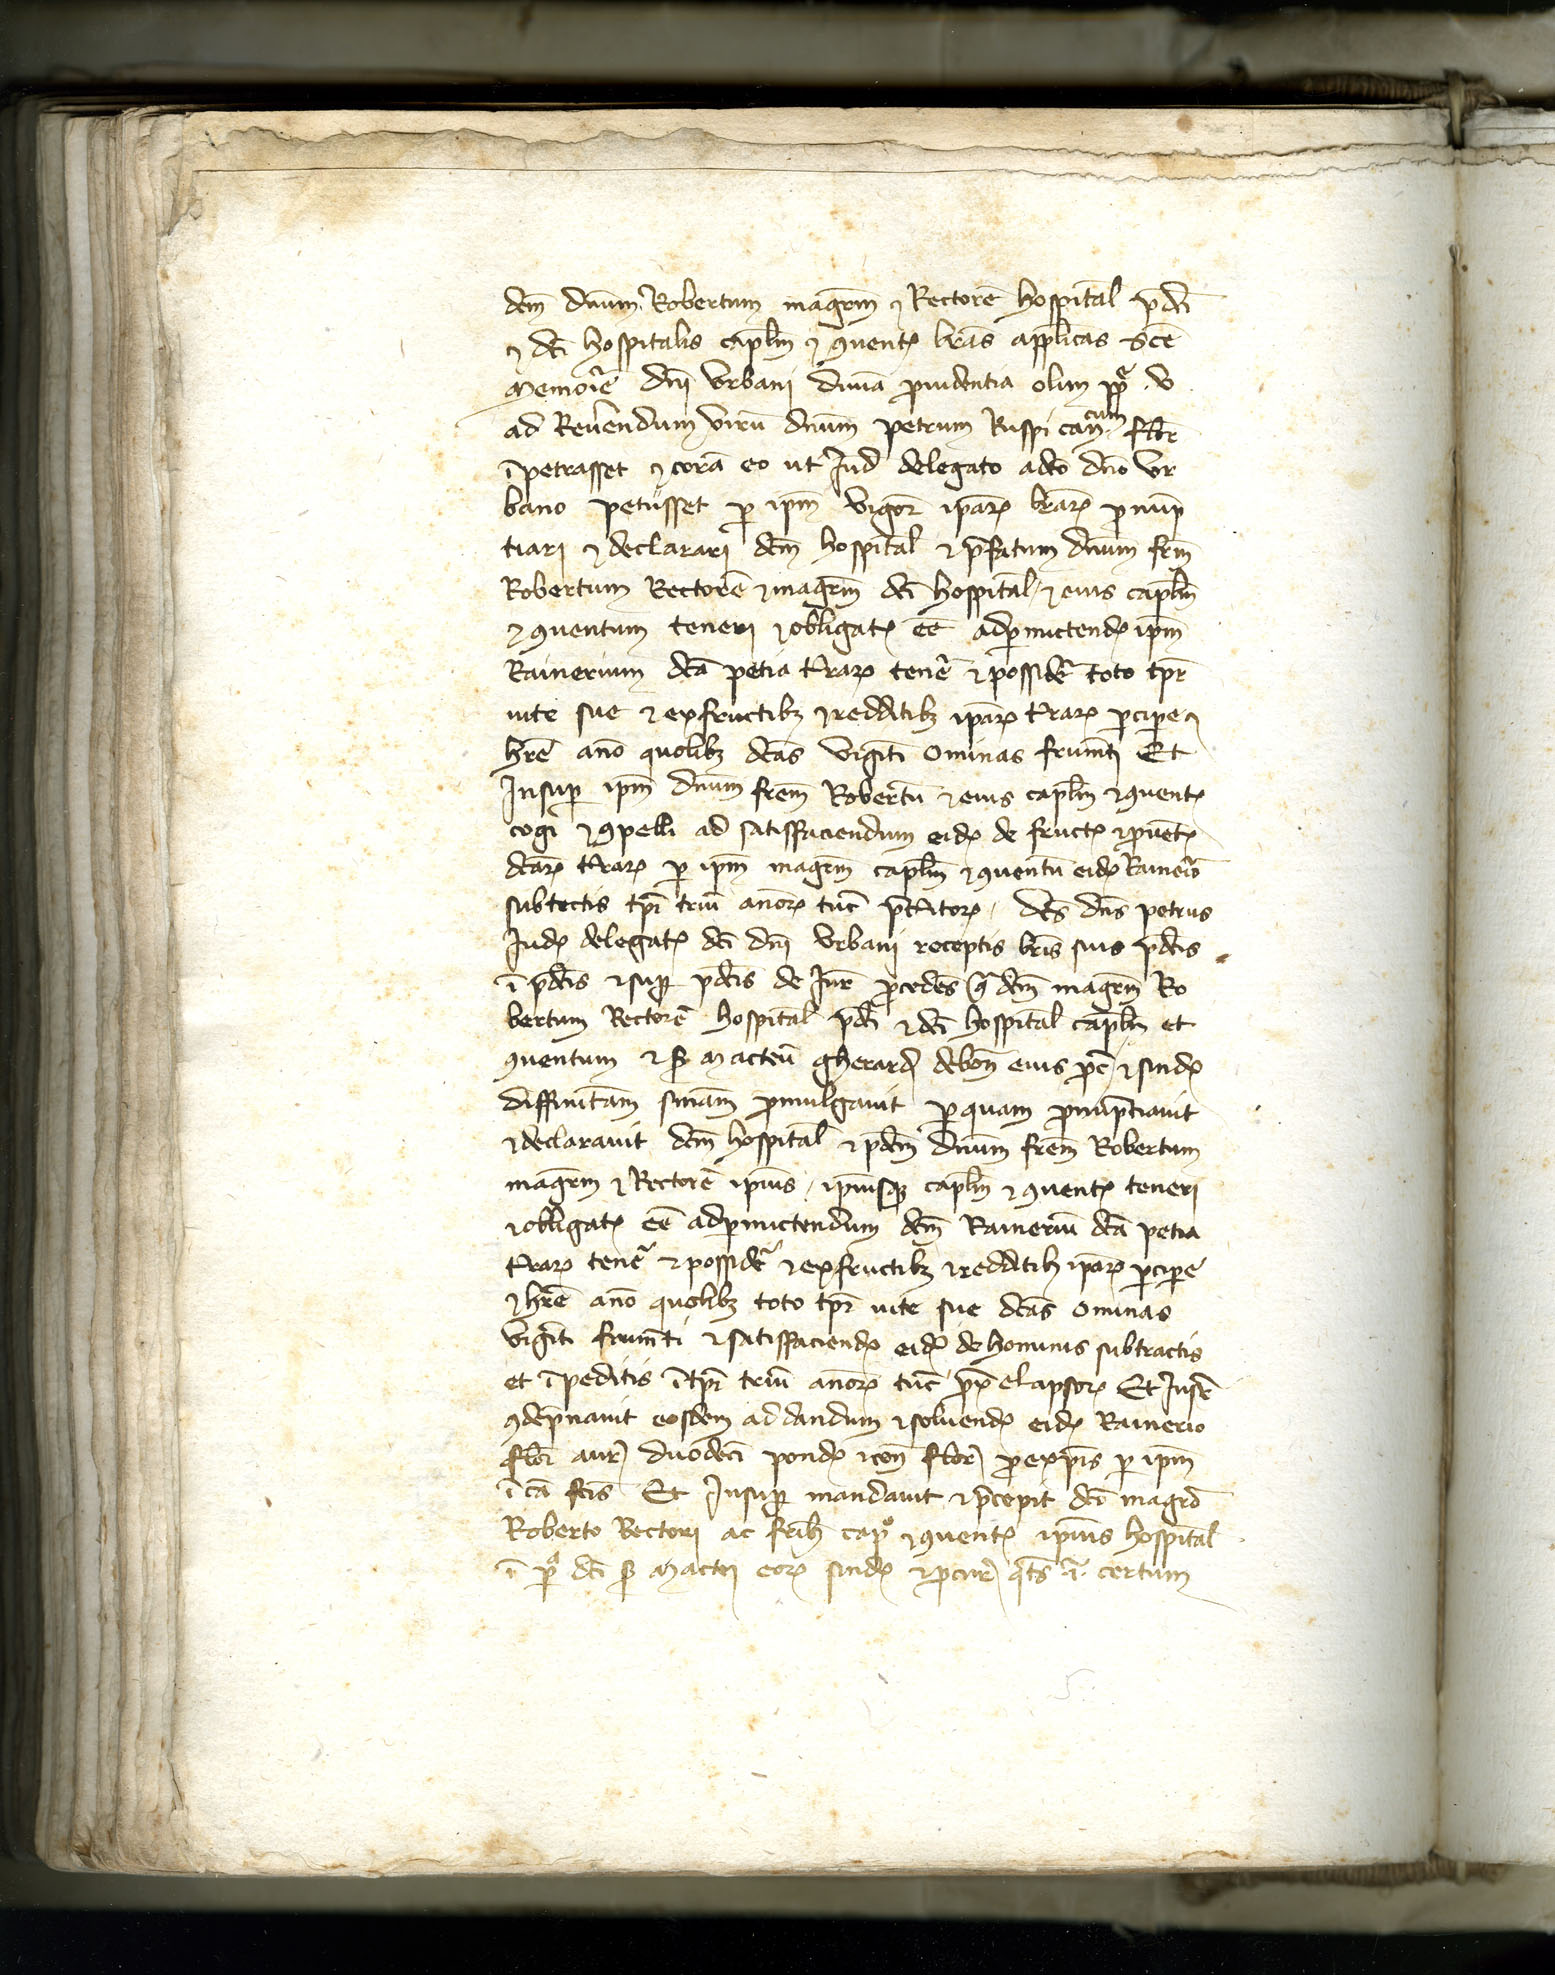 dcm dnum Robertum magrm et Rectore hospital pdci
et dci hospitalis caplm et 9uent lras applicas Sce
Memorie dni Vrbani diuina prouidentia olim pp V
ad Reuerendum viru dnum petrum Ruspi cancum flor
ipetrasset et cora eo ut Jud delegato a dco dno Vr
bano petiisset p ipm vigor ipar lrar pnup
tiari et declarari dcm hospital et pfatum dnum frem
Robertum Rectore et magrm dci hospital et eius caplm
et 9uentum teneri et obligat ee ad pmictend ipm
Rainerium dca petia trar tene et posside toto tpr
uite sue et ex fructib et redditib ipar trar pcipe et
hre ano quolib dcas viginti ominas frumti Et
Insup ipm dnum frem Robertu et eius caplm et 9uent
cogi et 9pelli ad satisfaciendum eid de fruct et puent
dcar trar p ipm magrm caplm et 9uentu eid Rainerio
subtractis tpr triu anor tuc pteritor dcs dns petrus
Jud delegat dci dni Vrbani receptis lris suis pdcis
i pdcis et sup pdcis de Jure pcedes 9 dcm magrm Ro
bertum Rectore hospital pdci et dci hospital caplm et
9uentum et s Macteu gherard debon eius proc et sind
diffinitam sniam pmulgauit p quam pnuptiauit
et declarauit dcm hospital et pdcm dnum frem Robertum
magrm et Rectore ipius ipiusq caplm et 9uent teneri
et obligat ee ad pmictendum dcm Raineriu dca petia
trar tene et posside et ex fructib et redditib ipar pcipe
et hre ano quolib toto tpr uite sue dcas ominas
viginti frumti et satisfaciend eid de hominis subtractis
et ipeditis i tpr triu anor tuc px elapsor Et Insup
9depnauit eosdem ad dandum et soluend eid Rainerio
flor aur duodeci pond et con flor p expis p ipm
i ca fcis Et Insup mandauit et pcepit dco magro
Roberto Rectori ac frib cap et 9uent ipius hospital
i p dci s Mactei eor sind et pcur qts i certum